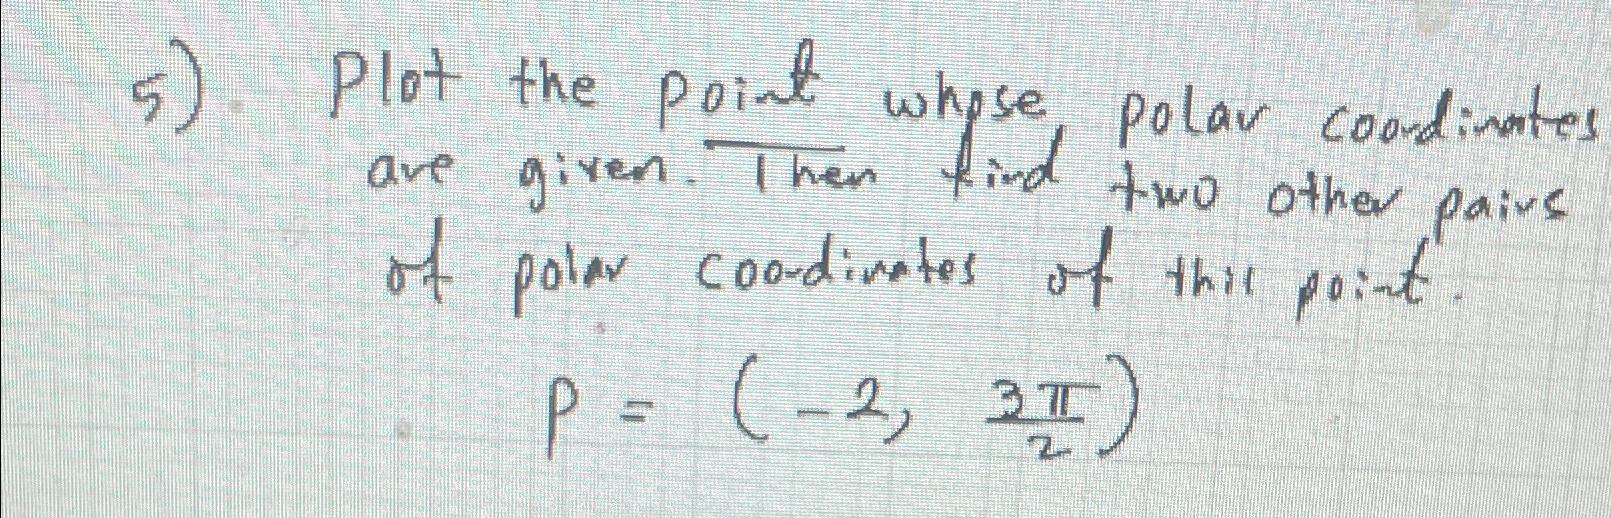 5) Plot the point whose polar coordinates
are given. Then find two other pairs
of polar coordinates of this point.
P = (-2, 3π/2)